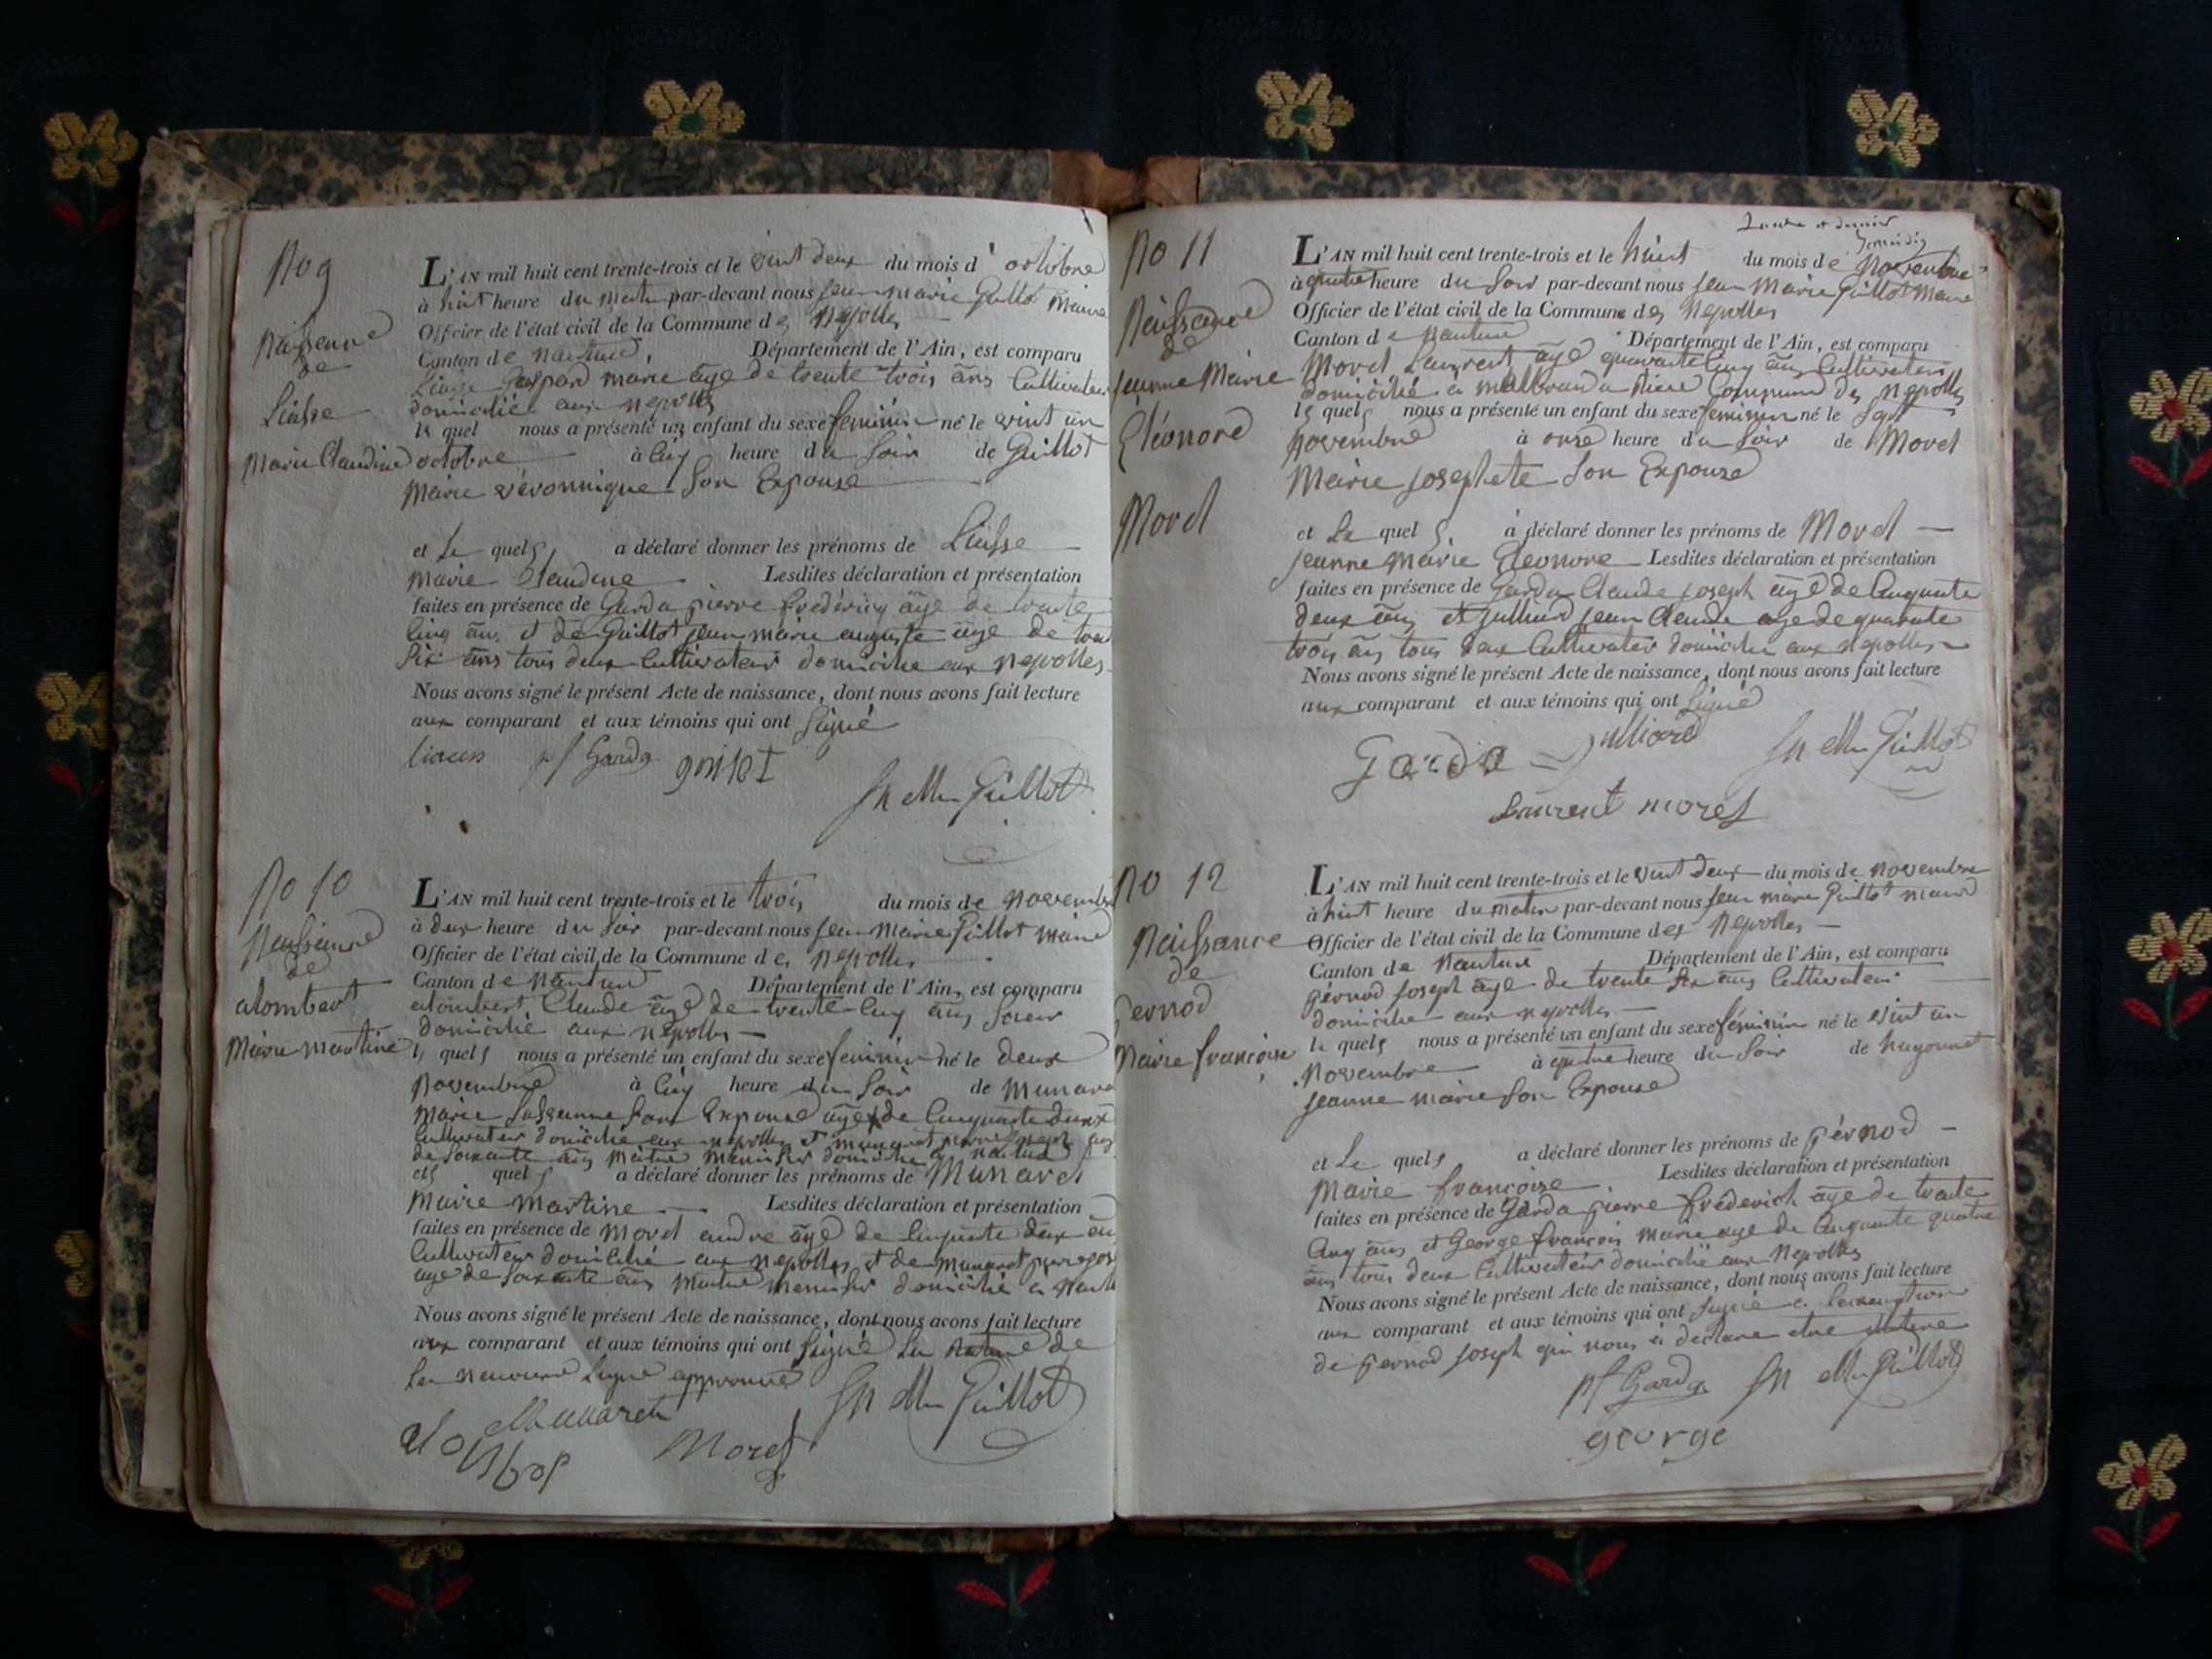 No 9
Naissance
de
Liasse
Marie Claudine
L'AN mil huit cent trente-trois et le vint deux du mois d' octobre
à huit heure du matin par-devant nous jean marie Guillot Maire
Officier de l'état civil de la Commune des Neyrolles
Canton de nantua, Département de l'Ain, est comparu
Gaspard marie âge de trente trois ans Cultivateur
domicilié aux neyrolles
le quel nous a présenté un enfant du sexe feminin né le vint un
octobre à Cinq heure du Soir de Guillot
Marie véronnique Son Expouse
et Le quel a déclaré donner les prénoms de Liasse
Marie Claudine Lesdites déclaration et présentation
faites en présence de Garda pierre frédéricq âge de trente
Cinq ans et de Guillot jean marie auguste âge de
Six ans tous deux Cultivateur domicilie aux neyrolles
Nous avons signé le présent Acte de naissance, dont nous avons fait lecture
aux comparant et aux témoins qui ont Signé
pf Garda
Jn Mie Guillot
No 10
Naissance
de
alombert
Marie martine
L'AN mil huit cent trente-trois et le trois du mois de novembre
à deux heure du Soir par-devant nous jean Marie Guillot Maire
Officier de l'état civil de la Commune des neyrolles
Canton de Nantua Département de l'Ain, est comparu
alombert Claude âgé de trente Cinq ans
domicilié aux neyrolles
le quel nous a présenté un enfant du sexe feminin né le deux
Novembre à Cinq heure du Soir de Munaret
Marie Susanne Son Expouse age de Cinquante deux
Cultivateur domicilié aux neyrolles et munaret pierre joseph age
de soixante ans maitre menisier domicilie a nantua
et quel a déclaré donner les prénoms de Munaret
Marie Martine Lesdites déclaration et présentation
faites en présence de Morel andre âge de Cinquante deux ans
Cultivateur domicilié aux neyrolles et de munaret pierre
age de soixante ans Maitre Menisier domicilié a Nantua
Nous avons signé le présent Acte de naissance, dont nous avons fait lecture
aux comparant et aux témoins qui ont Signé La de
La Signe approuvé
Munaret
Morel
Jn Mie Guillot
No 11
Naissance
de
Jeanne Marie
Eléonore
Morel
L'AN mil huit cent trente-trois et le huit du mois de Novembre
à quatre heure du Soir par-devant nous jean Marie Guillot Maire
Officier de l'état civil de la Commune des Neyrolles
Canton de Nantua Département de l'Ain, est comparu
Morel Laurent âgé quarante Cinq ans Cultivateur
domicilié a Commune des Neyrolles
le quel nous a présenté un enfant du sexe feminin né le Sept
Novembre à onse heure du Soir de Morel
Marie josephete Son Expouse
et Le quel à déclaré donner les prénoms de Morel
jeanne Marie Eleonore Lesdites déclaration et présentation
faites en présence de Garda Claude joseph âgé de Cinquante
deux ans et julliard jean Claude age de quarante
trois ans tous deux Cultivateur domicilie aux neyrolles
Nous avons signé le présent Acte de naissance, dont nous avons fait lecture
aux comparant et aux témoins qui ont Signé
Garda Julliard Jn Mie Guillot
Laurent morel
No 12
Naissance
de
Pernod
Marie françoise
L'AN mil huit cent trente-trois et le vint deux du mois de novembre
à huit heure du matin par-devant nous jean marie Guillot maire
Officier de l'état civil de la Commune des Neyrolles
Canton de Nantua Département de l'Ain, est comparu
pérnod joseph âge de trente six ans Cultivateur
domicilie aux neyrolles
le quel nous a présenté un enfant du sexe féminin né le vint un
Novembre à quatre heure du Soir de hugonnet
jeanne marie Son Expouse
et Le quel a déclaré donner les prénoms de pérnod
Marie françoise Lesdites déclaration et présentation
faites en présence de Garda pierre fréderich âge de trente
Cinq ans et George françois Marie age de Cinquante quatre
ans tous deux Cultivateur domicilié aux Neyrolles
Nous avons signé le présent Acte de naissance, dont nous avons fait lecture
aux comparant et aux témoins qui ont Signé
de pernod joseph qui nous à declare
pf Garda Jn Mie Guillot
george